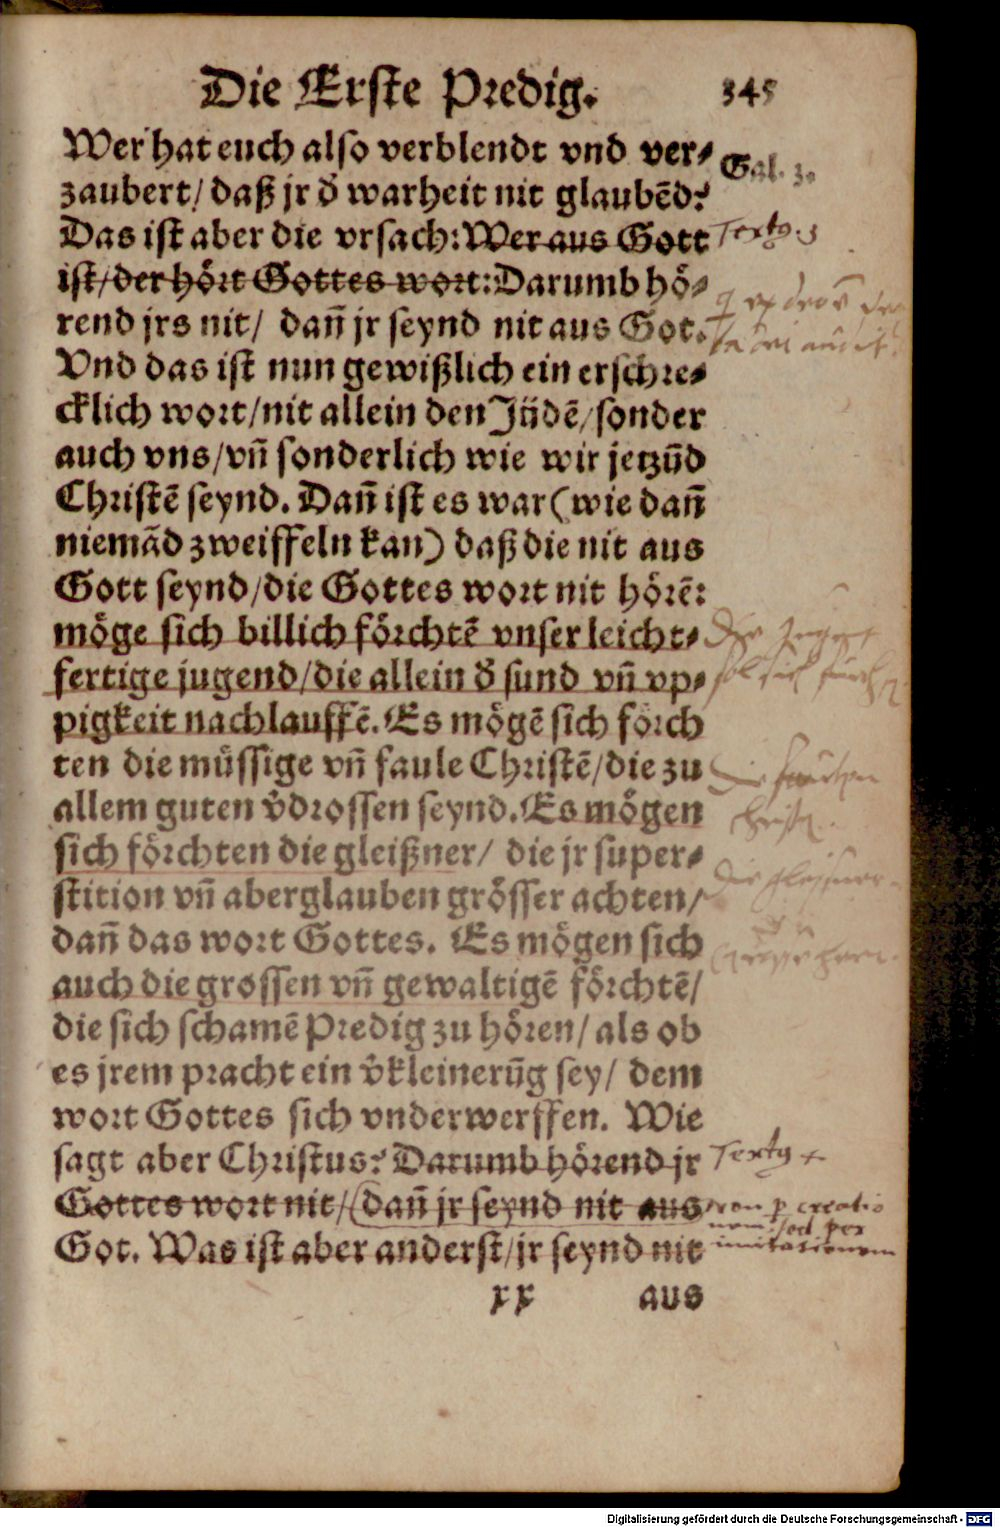 Die Erste Predig. 345
Wer hat euch also verblendt vnd ver⸗
Gal. 3.
zaubert/ daß jr d̕ warheit nit glaubẽd?
Das ist aber die vrsach: Wer aus Gott
Textus
ist/der hoͤrt Gottes wort: Darumb hoͤ⸗
rend jrs nit/ dañ jr seynd nit aus Got.
Vnd das ist nun gewißlich ein erschre⸗
cklich wort/nit allein den Juͤdẽ/sonder
auch vns/vñ sonderlich wie wir jetzũd
Christẽ seynd. Dañ ist es war (wie dañ
niemãd zweiffeln kan) daß die nit aus
Gott seynd/die Gottes wort nit hoͤrẽ:
moͤge sich billich foͤrchtẽ vnser leicht⸗
fertige jugend/die allein d̕ sund vñ vp⸗
pigkeit nachlauffẽ. Es moͤgẽ sich foͤrch
ten die muͤssige vñ faule Christẽ/die zu
allem guten v̓drossen seynd. Es moͤgen
sich foͤrchten die gleißner/ die jr super⸗
die gleisner
stition vñ aberglauben groͤsser achten/
dañ das wort Gottes. Es moͤgen sich
auch die grossen vñ gewaltigẽ foͤrchtẽ/
die sich schamẽ Predig zu hoͤren/ als ob
es jrem pracht ein v̓kleinerũg sey/ dem
wort Gottes sich vnderwerffen. Wie
sagt aber Christus? Darumb hoͤrend jr
Textus
Gottes wort nit/(dañ jr seynd nit aus
non p creatio
nem sed per
Got. Was ist aber anderst/jr seynd nit
imitationem
xx aus
Digitalisierung gefördert durch die Deutsche Forschungsgemeinschaft - DFG